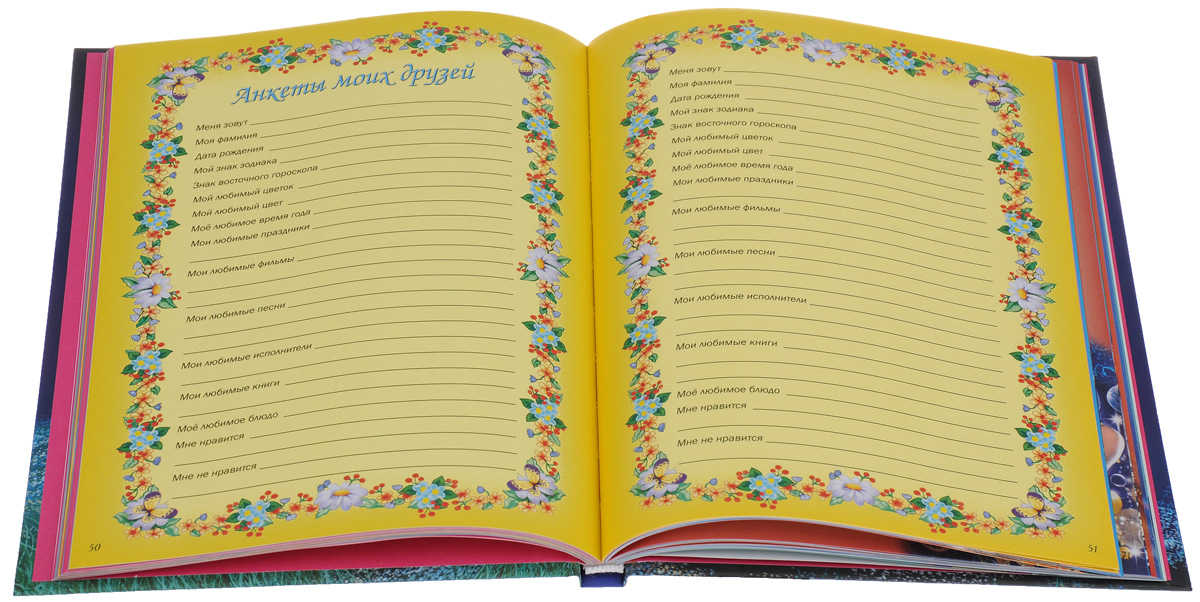 Анкеты моих друзей
Меня зовут
Моя фамилия
Дата рождения
Мой знак зодиака
Знак восточного гороскопа
Мой любимый цветок
Мой любимый цвет
Моё любимое время года
Мои любимые праздники
Мои любимые фильмы
Мои любимые песни
Мои любимые исполнители
Мои любимые книги
Моё любимое блюдо
Мне нравится
Мне не нравится
50
Меня зовут
Моя фамилия
Дата рождения
Мой знак зодиака
Знак восточного гороскопа
Мой любимый цветок
Мой любимый цвет
Моё любимое время года
Мои любимые праздники
Мои любимые фильмы
Мои любимые песни
Мои любимые исполнители
Мои любимые книги
Моё любимое блюдо
Мне нравится
Мне не нравится
51
71